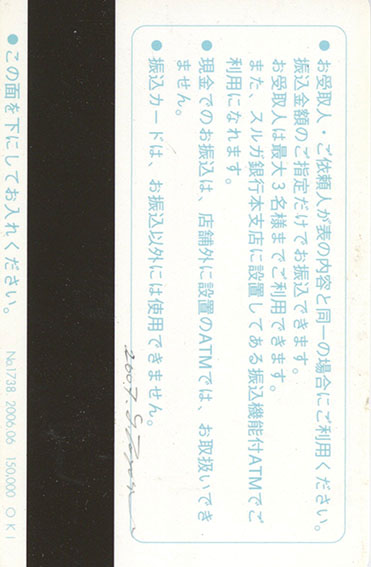 ●お受取人・ご依頼人が表の内容と同一の場合にご利用ください。
振込金額のご指定だけでお振込できます。
お受取人は最大3名様までご利用できます。
また、スルガ銀行本支店に設置してある振込機能付ATMでご
利用になれます。
●現金でのお振込は、店舗外に設置のATMでは、お取扱いでき
ません。
●振込カードは、お振込以外には使用できません。
2007.8
●この面を下にしてお入れください。
No.1738. 2006.06 150,000 OKI